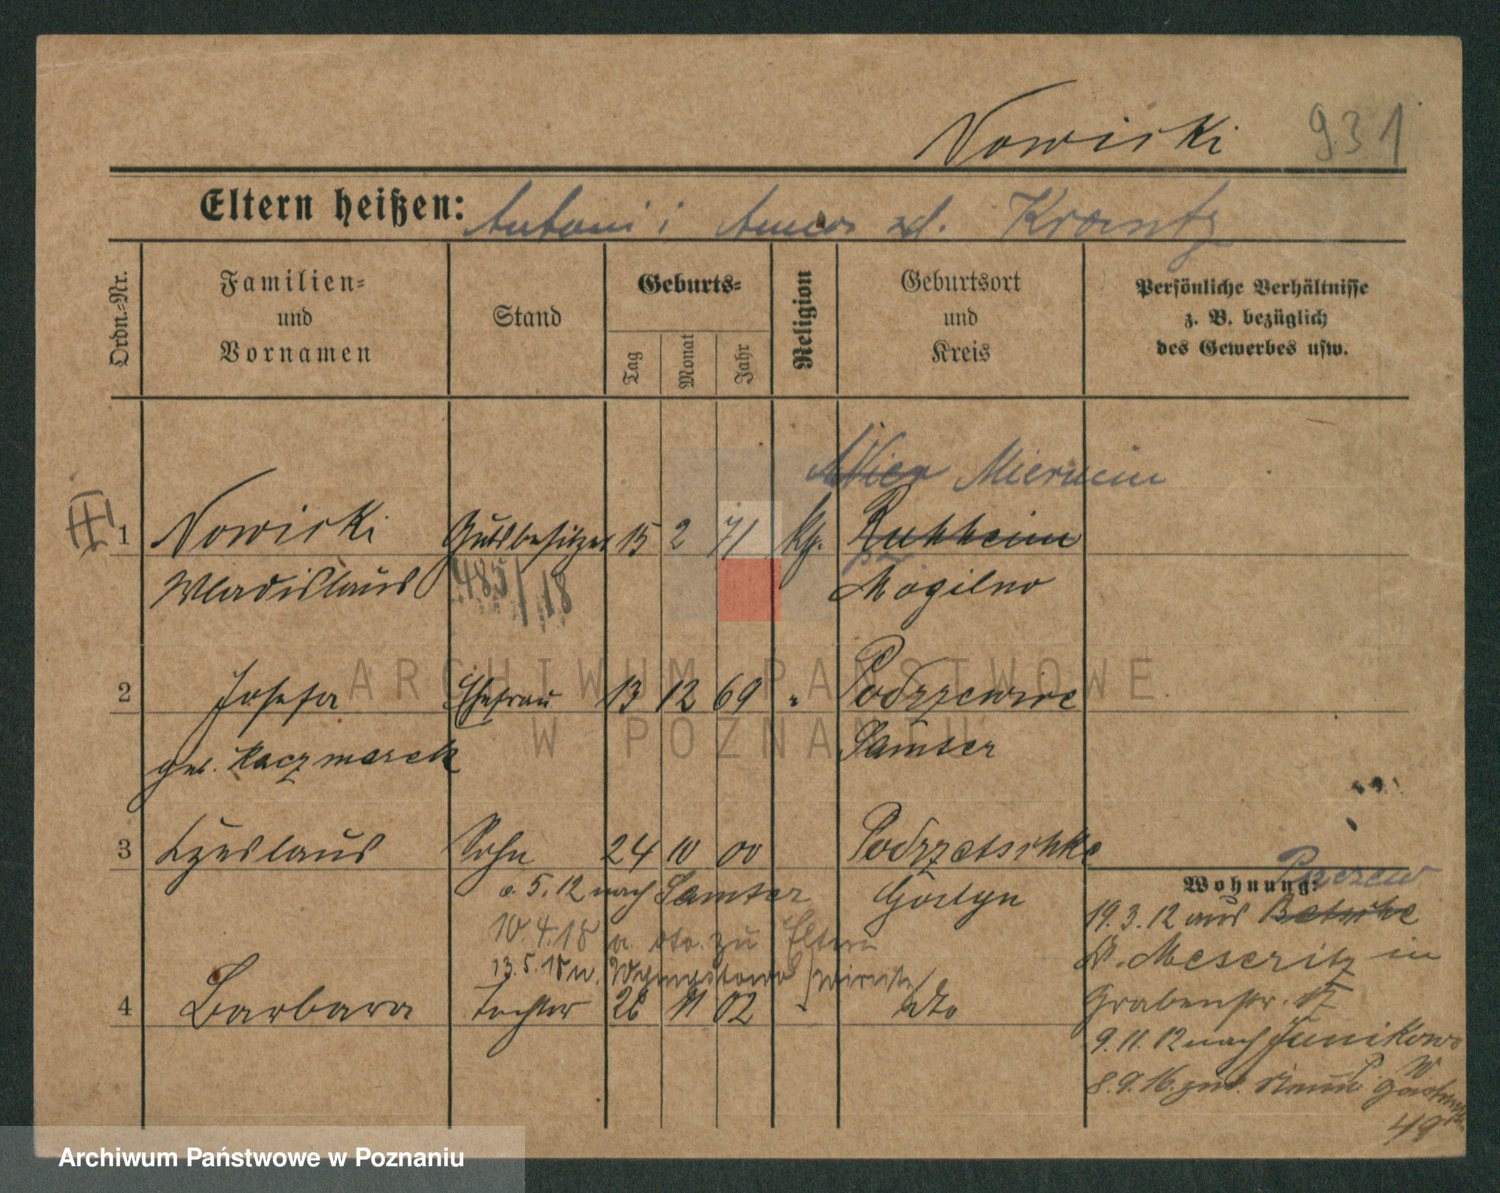 Nowicki 931
Eltern heißen: Antoni i Krantz
Ordn.-Nr.
Familien-
und
Vornamen
Stand
Geburts-
Tag
Monat
Jahr
Religion
Geburtsort
und
Kreis
Persönliche Verhältnisse
z. B. bezüglich
des Gewerbes usw.
Mierucin
1 Nowicki Gutsbesitzer 15 2 71 Kg. Ruhheim
Wladislaus 485/18 Mogilno
2 Josefa Ehefrau 13 12 69 " Podrzewie
geb. Kaczmarek Samter
3 Czeslaus Sohn 24 10 00
5.12 nach Samter Gostyn
10.4.18 zu Eltern
13.5.18
4 Barbara Tochter 26 11 02 " dto
Wohnung:
19.3.12 aus Betsche
Kr. Meseritz in
Grabenstr.
9.11.12 nach Junikowo
8.9.16
49
ARCHIWUM PAŃSTWOWE
W POZNANIU
Archiwum Państwowe w Poznaniu